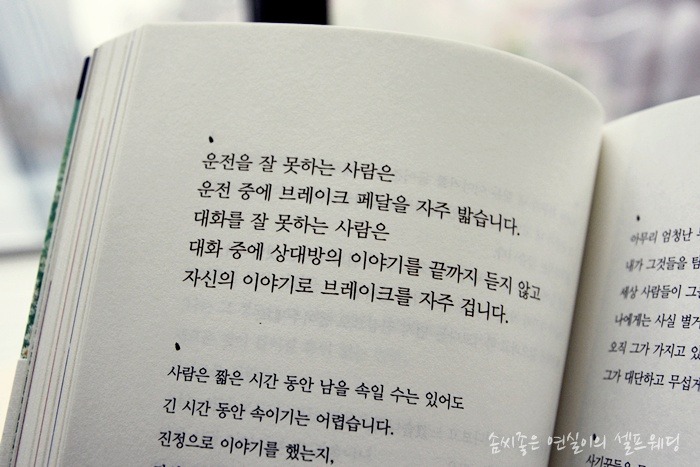 운전을 잘 못하는 사람은
운전 중에 브레이크 페달을 자주 밟습니다.
대화를 잘 못하는 사람은
대화 중에 상대방의 이야기를 끝까지 듣지 않고
자신의 이야기로 브레이크를 자주 겁니다.
사람은 짧은 시간 동안 남을 속일 수는 있어도
긴 시간 동안 속이기는 어렵습니다.
진정으로 이야기를 했는지,
아무리 엄청난
내가 그것들을
세상 사람들이
나에게는 사실
오직 그가 가지고
그가 대단하고
사기꾼들은
솜씨좋은 연실이의 셀프웨딩